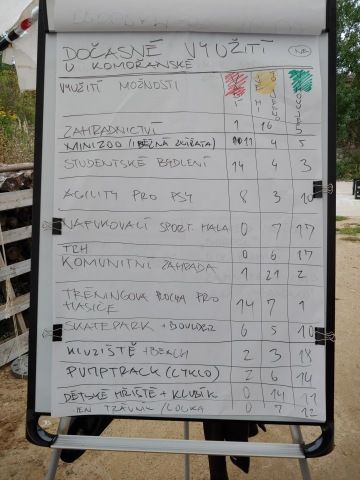 DOČASNÉ VYUŽITÍ
U KOMOŘANSKÉ
VYUŽITÍ MOŽNOSTI
ZAHRADNICTVÍ 1 16 5
MINIZOO (BĚŽNÁ ZVÍŘATA) 11 4 5
STUDENTSKÉ BYDLENÍ 14 4 3
AGILITY PRO PSY 8 3 10
NAFUKOVACÍ SPORT. HALA 0 7 17
TRH 0 6 17
KOMUNITNÍ ZAHRADA 1 21 2
TRÉNINGOVÁ PLOCHA PRO
HASIČE 14 7 1
SKATEPARK + 6 5 10
KLUZIŠTĚ + BEACH 2 3 18
PUMPTRACK (CYKLO) 2 6 14
DĚTSKÉ HŘIŠTĚ + KLUBÍK 0 14 11
JEN TRÁVNÍK / LOUKA 0 7 12